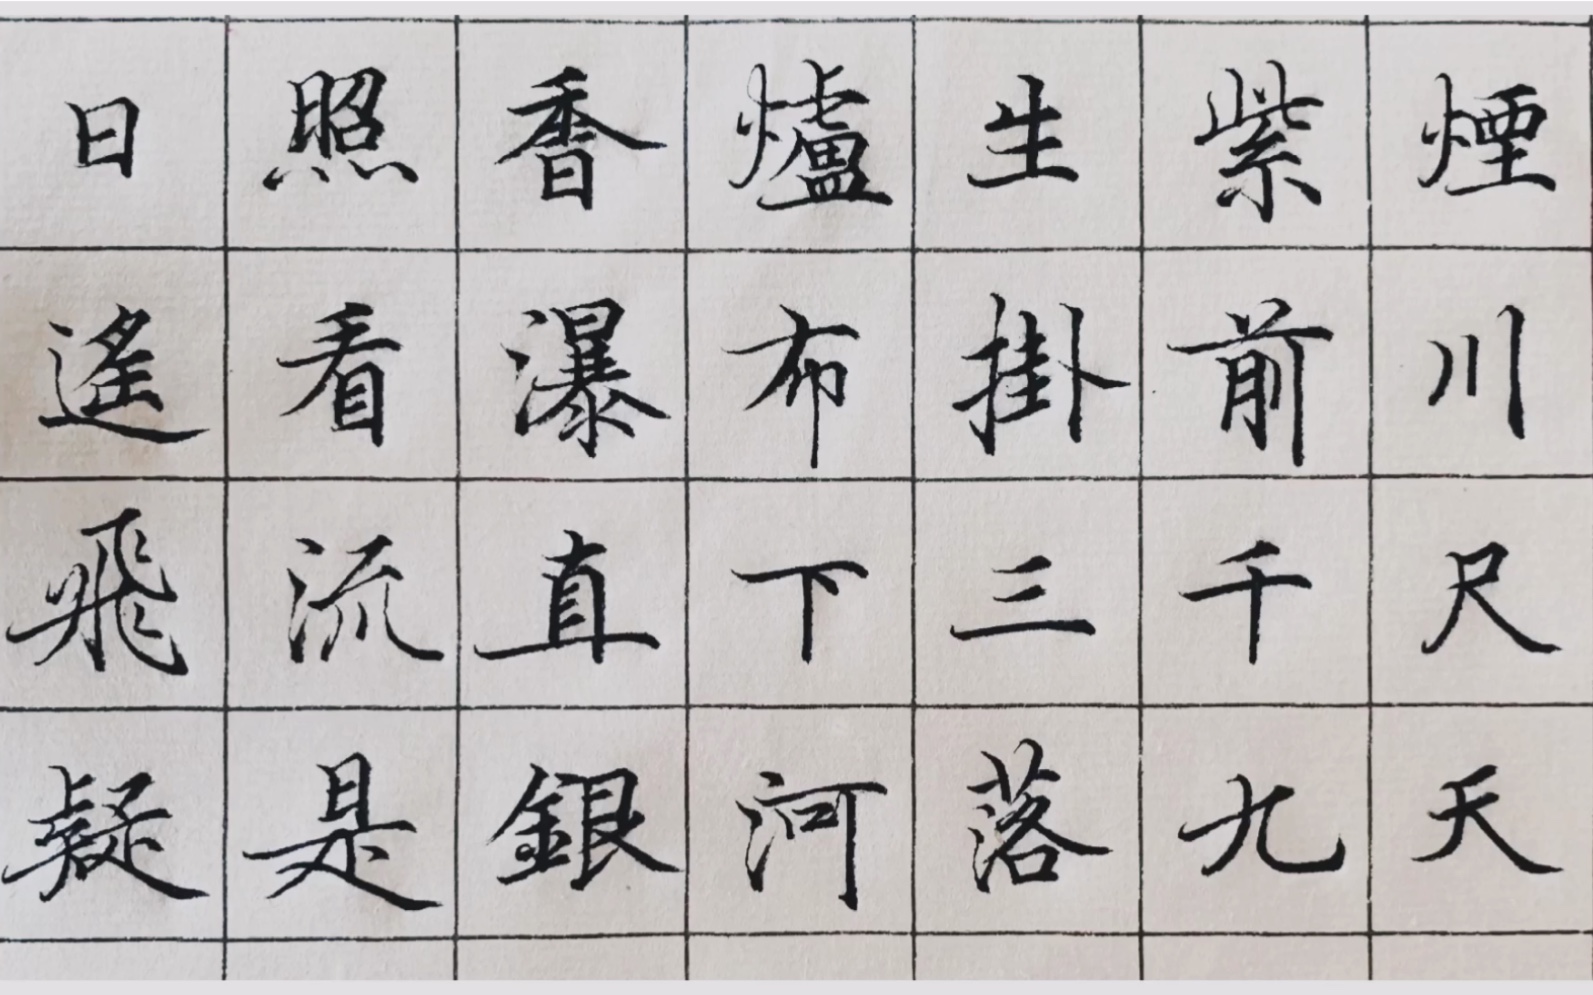 日照香爐生紫煙
遙看瀑布掛前川
飛流直下三千尺
疑是銀河落九天